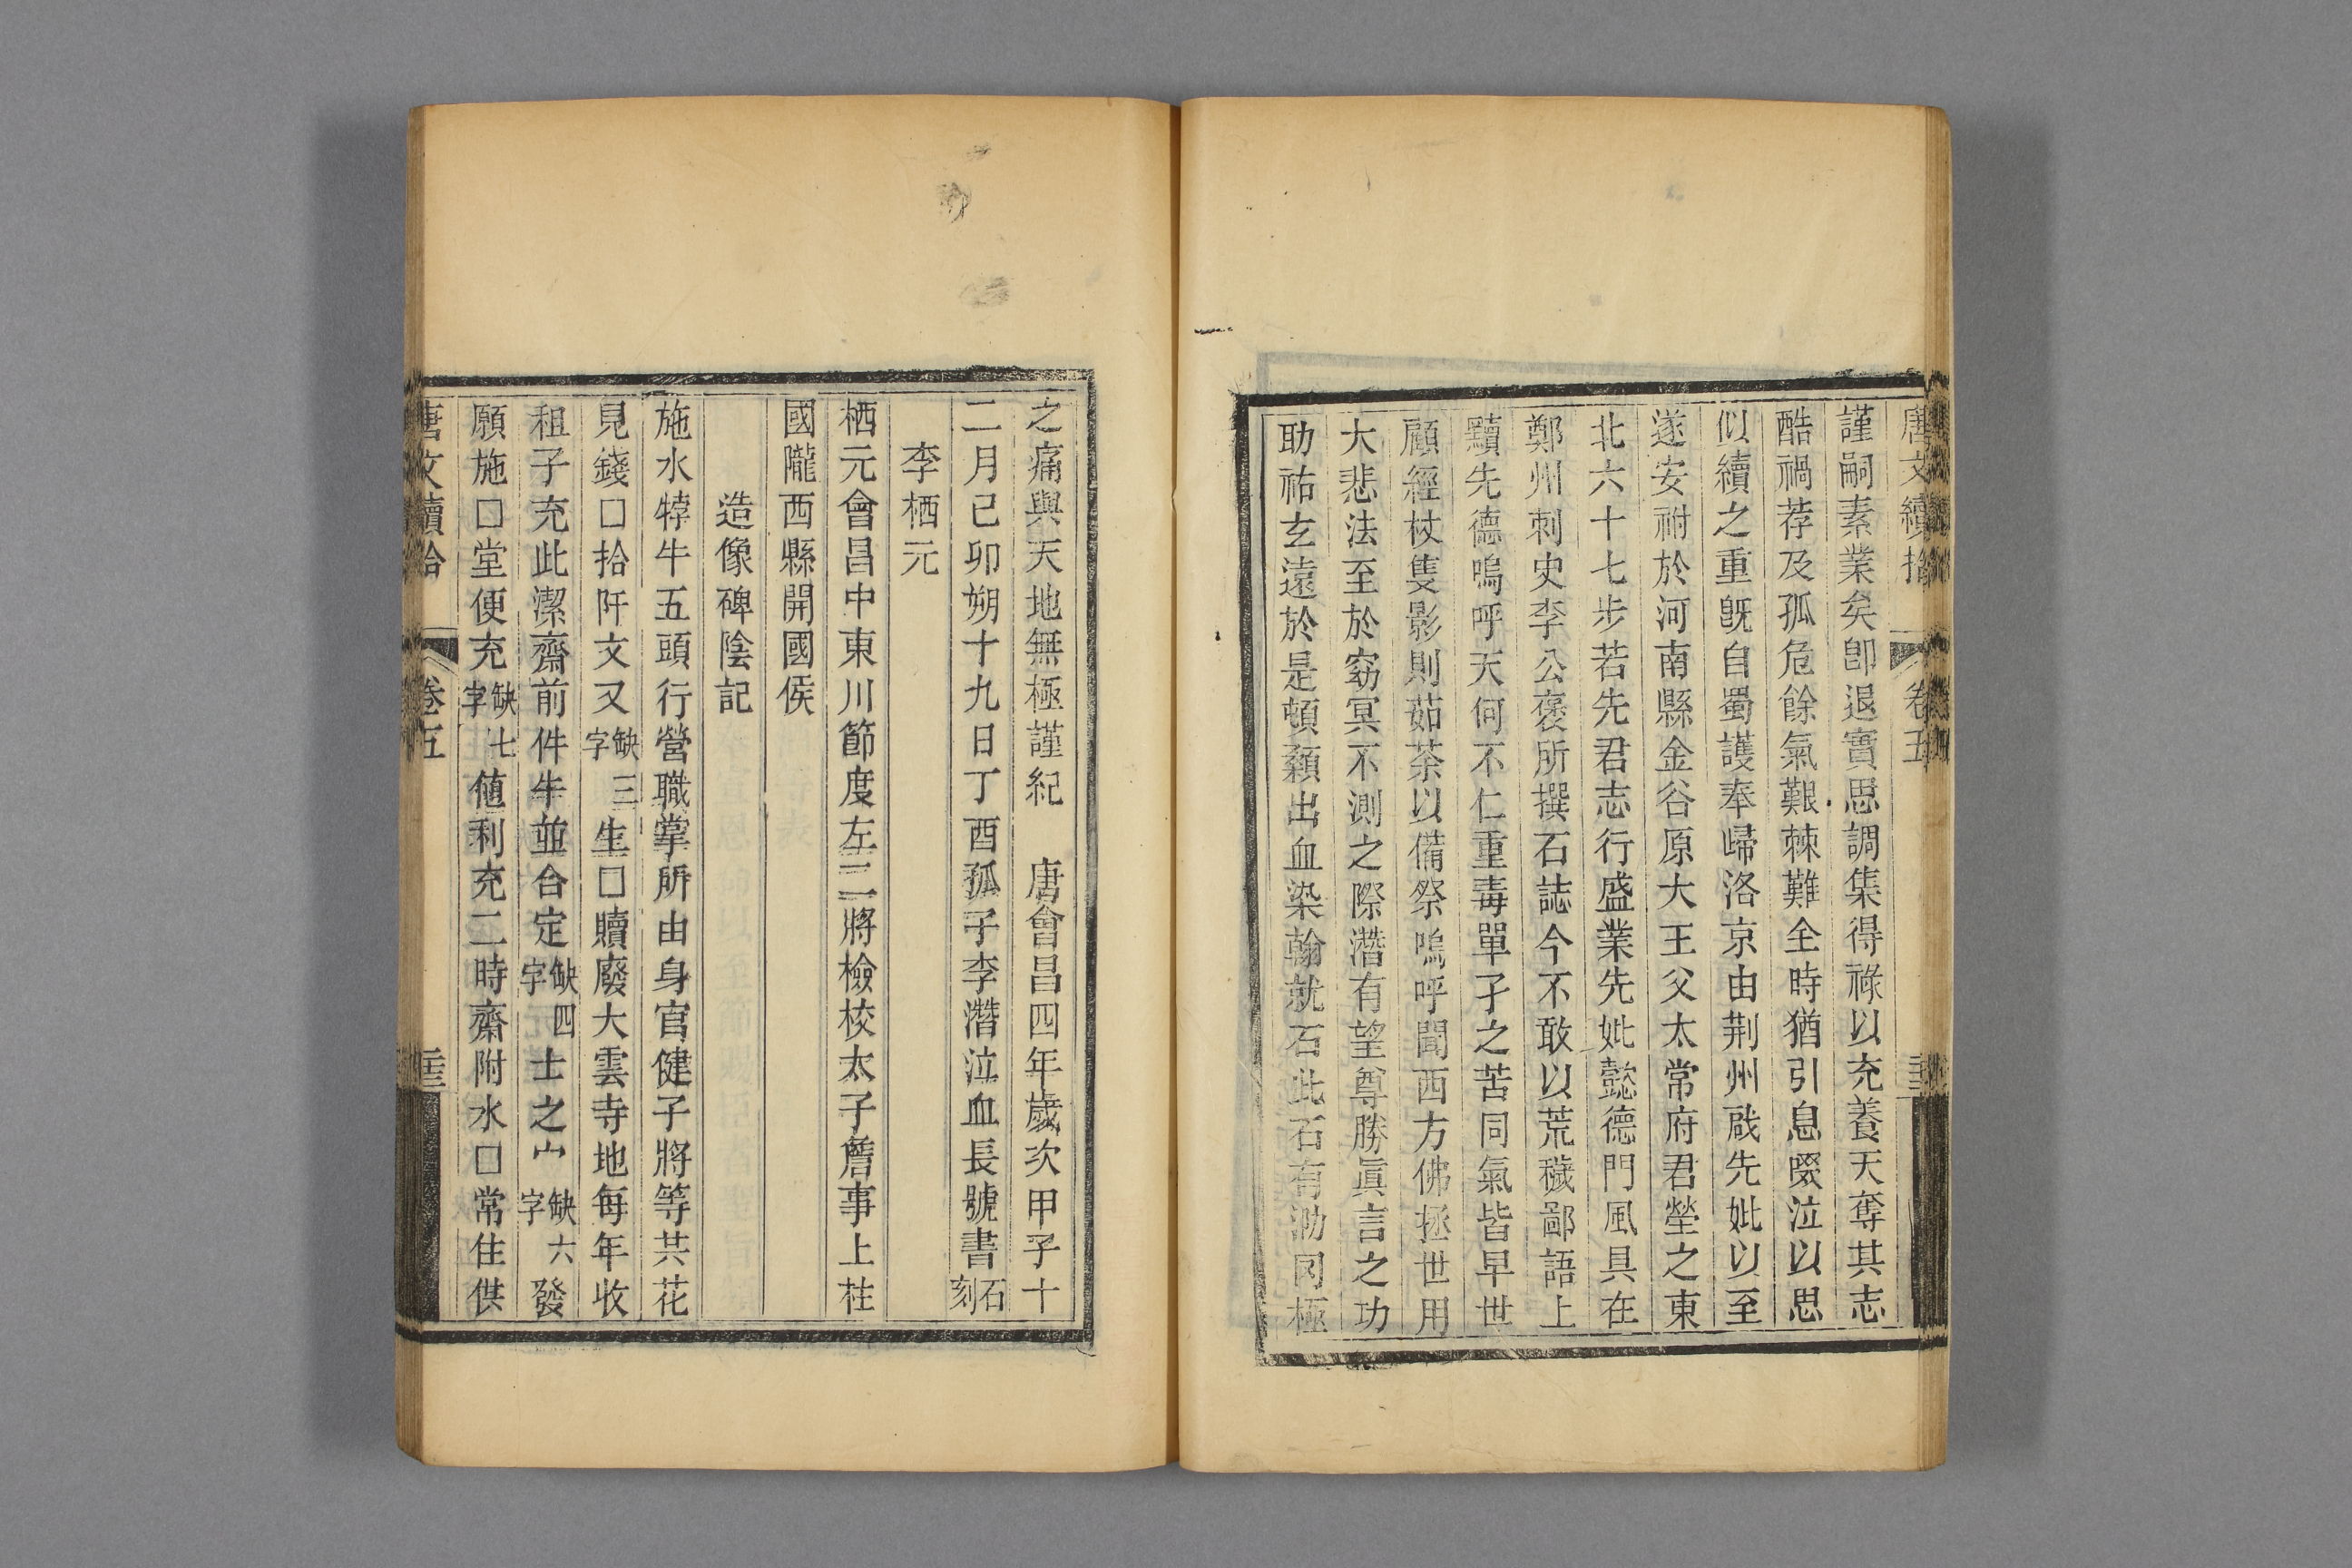 唐文續拾 卷五
謹嗣素業矣卽退實思調集得祿以充養天奪其志
酷禍荐及孤危餘氣艱棘難全時猶引息啜泣以思
似續之重旣自蜀護奉歸洛京由荆州啟先妣以至
遂安祔於河南縣金谷原大王父太常府君塋之東
北六十七步若先君志行盛業先妣懿德門風具在
鄭州刺史李公褒所撰石誌今不敢以荒穢鄙語上
黷先德嗚呼天何不仁重毒單孑之苦同氣皆早世
顧經杖隻影則茹荼以備祭嗚呼聞西方佛拯世用
大悲法至於窈冥不測之際濳有望尊勝眞言之功
助祐玄遠於是頓顙出血染翰就石此石有泐罔極
之痛與天地無極謹紀 唐會昌四年歲次甲子十
二月己卯朔十九日丁酉孤子李濳泣血長號書石刻
李栖元
栖元會昌中東川節度左二將檢校太子詹事上柱
國隴西縣開國侯
造像碑陰記
施水牸牛五頭行營職掌所由身官健子將等共花
見錢□拾阡文又缺三字生□贖廢大雲寺地每年收
租子充此潔齋前件牛並合定缺四字士之宀缺六字發
願施□堂便充缺七字値利充二時齋附水□常住供
唐文續拾 卷五